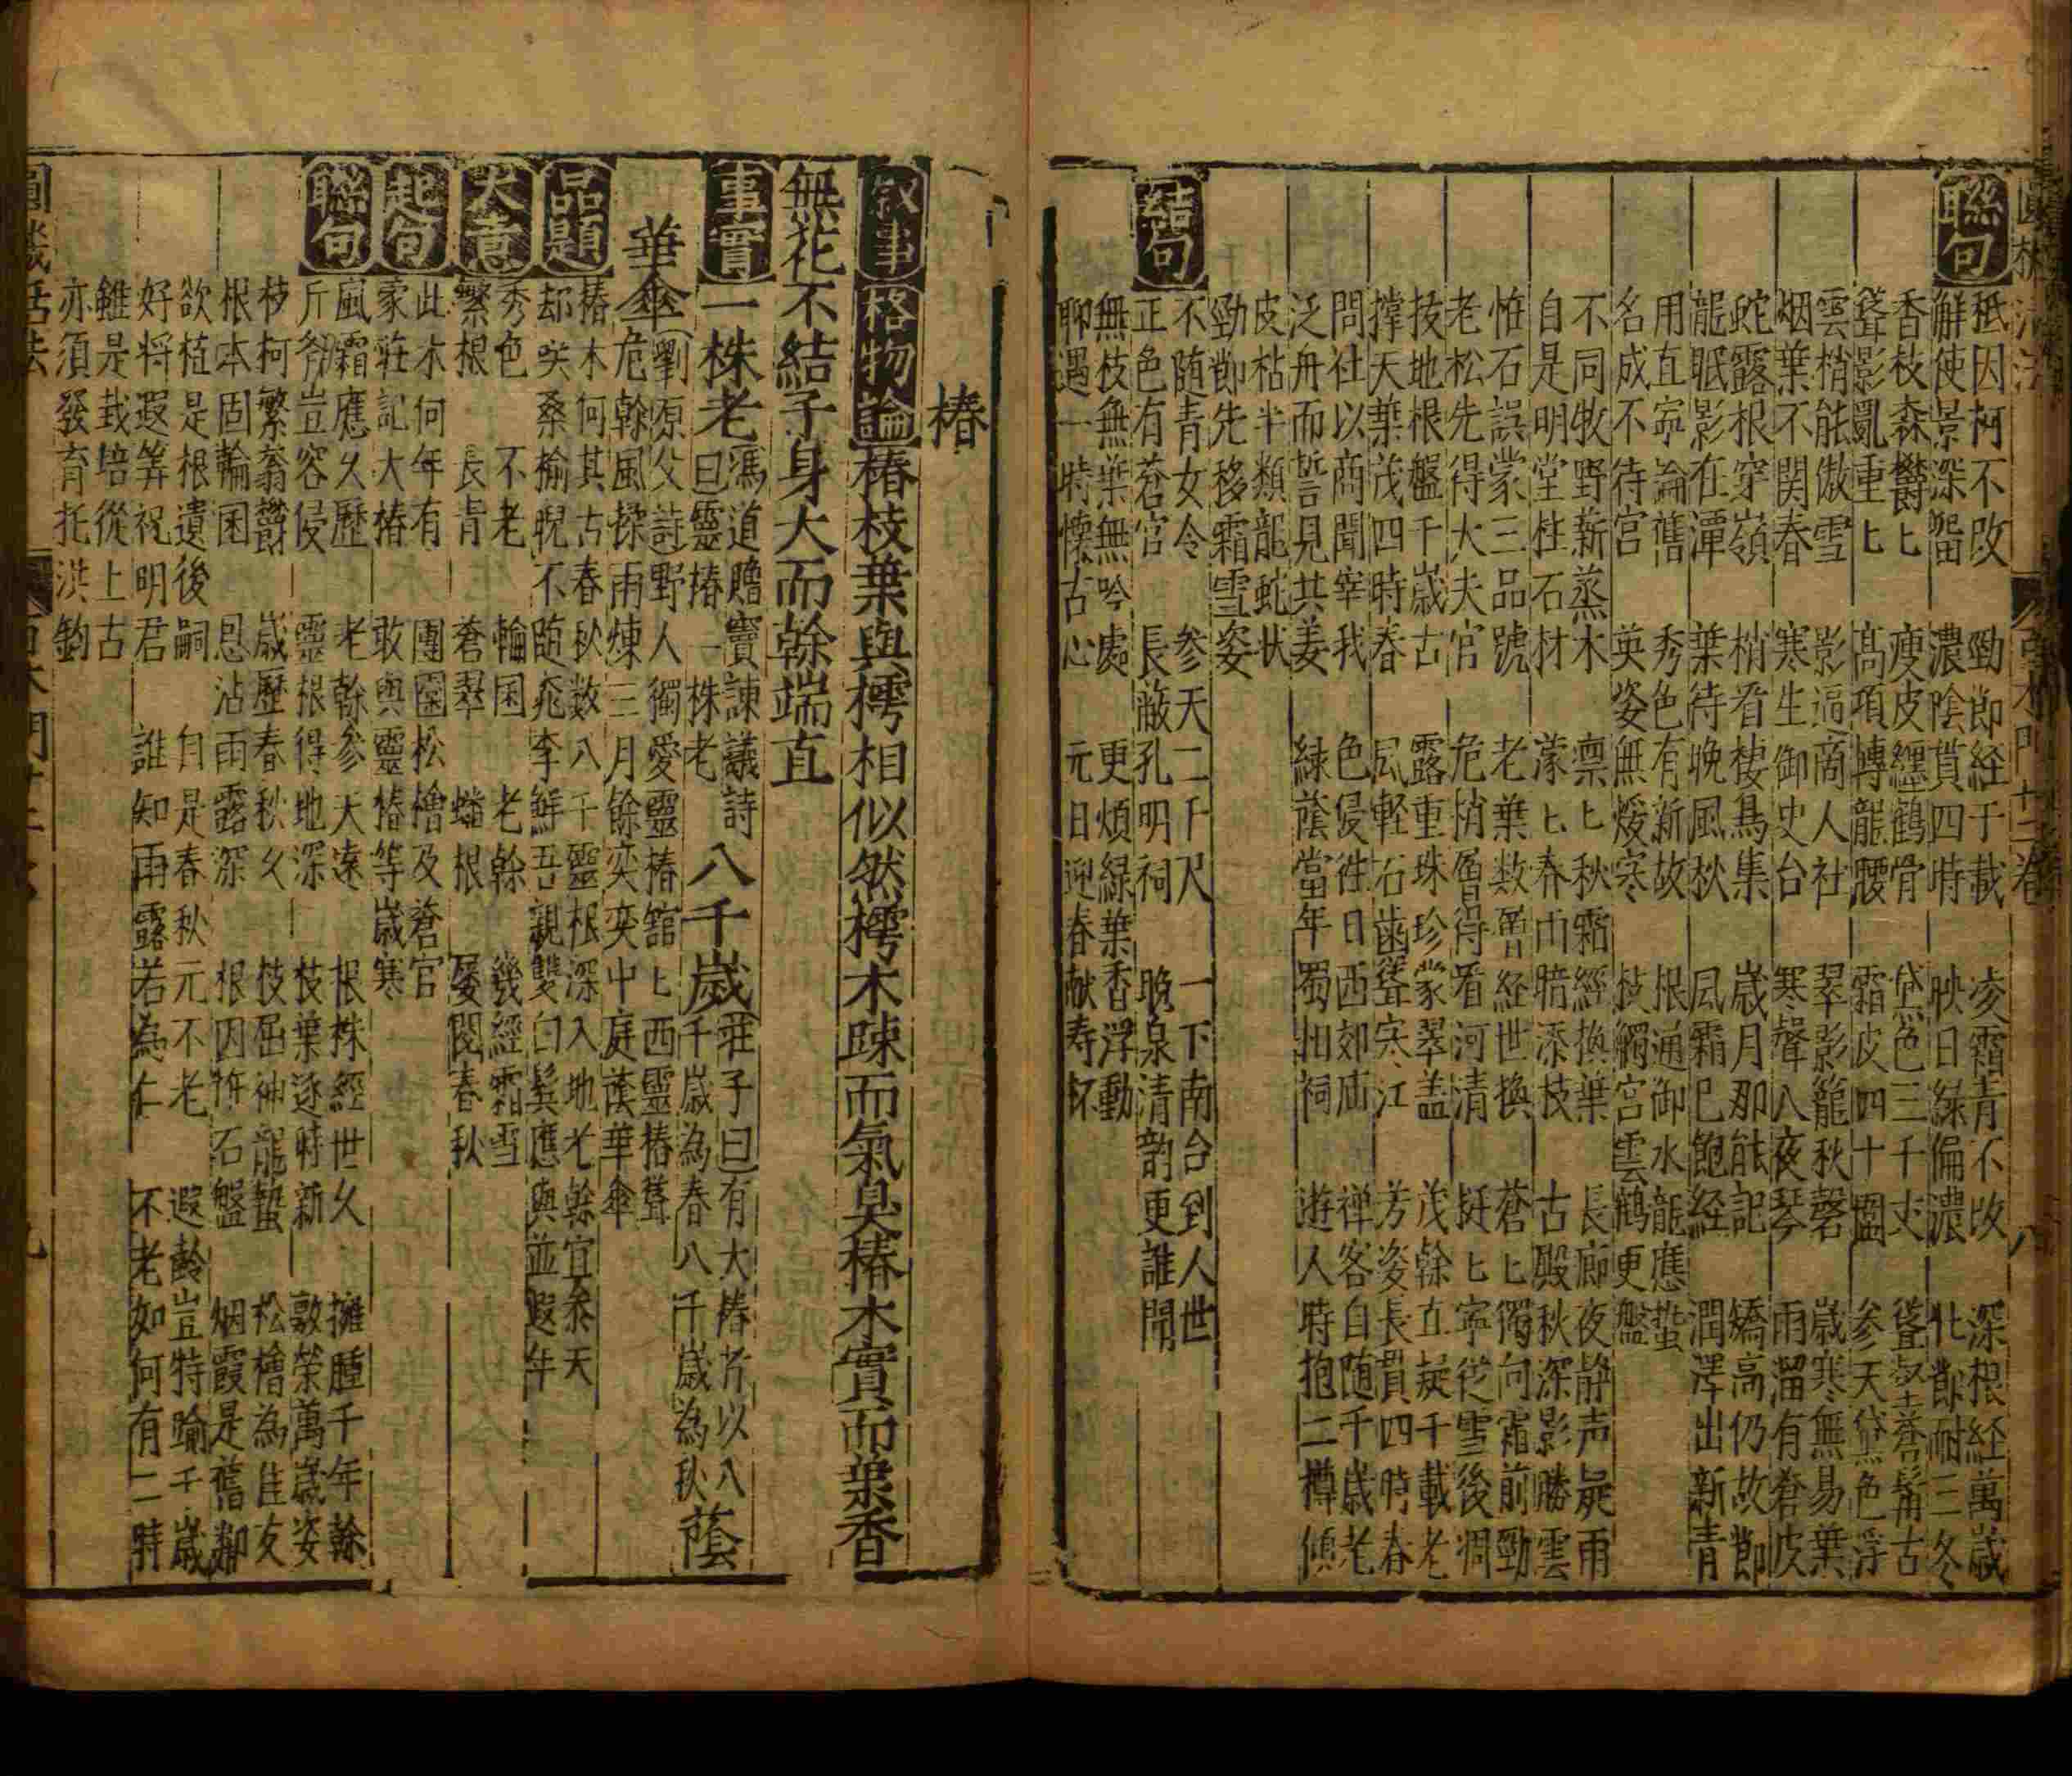 聯句
秪因柯不改 勁節経千載 凌霜青不改 深根経萬歳
解使景深留 濃陰貫四時 映日緑偏濃 化節耐三冬
香枝森欝匕 瘦皮纒鶴骨 黛色三千丈 聳壑蒼髯古
聳影亂重匕 髙項轉龍腰 霜皮四十圍 参天黛色浮
雲梢能傲雪 影逼商人社 翠影籠秋磬 歳寒無易葉
烟葉不関春 寒生御史台 寒聲八夜琴 雨溜有蒼皮
蛇露根穿嶺 梢看棲鳥集 歳月那能記 矯高仍故節
龍眠影在潭 葉待晚風秋 風霜已飽経 潤澤出新青
用直寧論舊 秀色有新故 根通御水龍應蟄
名成不待宮 英姿無煖寒 枝觸宮雲鶴更盤
不同牧野薪蒸木 禀匕秋霜經換葉 長廊夜静声疑雨
自是明堂柱石材 濛匕春雨暗添枝 古殿秋深影勝雲
惟石誤蒙三品號 老葉数層経世換 蒼匕獨向霜前勁
老松先得大夫官 危梢層得看河清 挺匕寧従雪後凋
技地根盤千歳古 露重珠珍蒙翠盖 茂幹直疑千載老
撑天葉茂四時春 風軽石齒聳寒江 芳姿長貫四時春
問社以商聞宰我 色侵徃日西郊庙 禅客自随千歳老
泛舟而誓見共姜 緑蔭當年蜀相祠 遊人時抱二樽傾
皮枯半類龍蛇状
勁節先移霜雪姿
結句
不随青女令 参天二千尺 一下南台到人世
正色有蒼官 長蔽孔明祠 晚泉清韵更誰聞
無枝無葉無吟處 更煩緑葉香浮動
聊遇一時懐古心 元日迎春献寿杯
椿
叙事 格物論 椿枝葉與樗相似然樗木疎而氣臭椿木實而葉香
無花不結子身大而幹端直
事實 一株老 馮道贈竇諫議詩曰靈椿一株老 八千歳 莊子曰有大椿者以八千歳為春八千歳為秋 蔭
華傘 劉原父詩野人獨愛靈椿舘匕西靈椿聳危幹風揉雨煉三月餘奕奕中庭蔭華傘
品題 椿木何其古春秋数八千靈根深入地老幹宜参天
却咲桑榆晚不随桃李鮮吾親雙白髪應與並遐年
大意 秀色 不老 輪囷 老幹 幾經霜雪
繁根 長青 蒼翠 蟠根 屡閲春秋
起句 此木何年有 團圞松檜及蒼官
家莊記大椿 敢與靈椿等歳寒
聯句 風霜應久歷 老幹参天遠 根株經世久 擁腫千年幹
斤斧豈容侵 靈根得地深 枝葉逐時新 敷榮萬歳姿
枝柯繁蓊欝 歳歷春秋久 枝屈神龍蟄 松檜為佳友
根本固輪囷 恩沾雨露深 根因怍石盤 烟霞是舊鄰
欲植是根遺後嗣 自是春秋元不老 遐齡豈特踰千歳
好将遐筭祝明君 誰知雨露若為仁 不老如何有二時
雖是栽培從上古
亦須發育托洪鈞